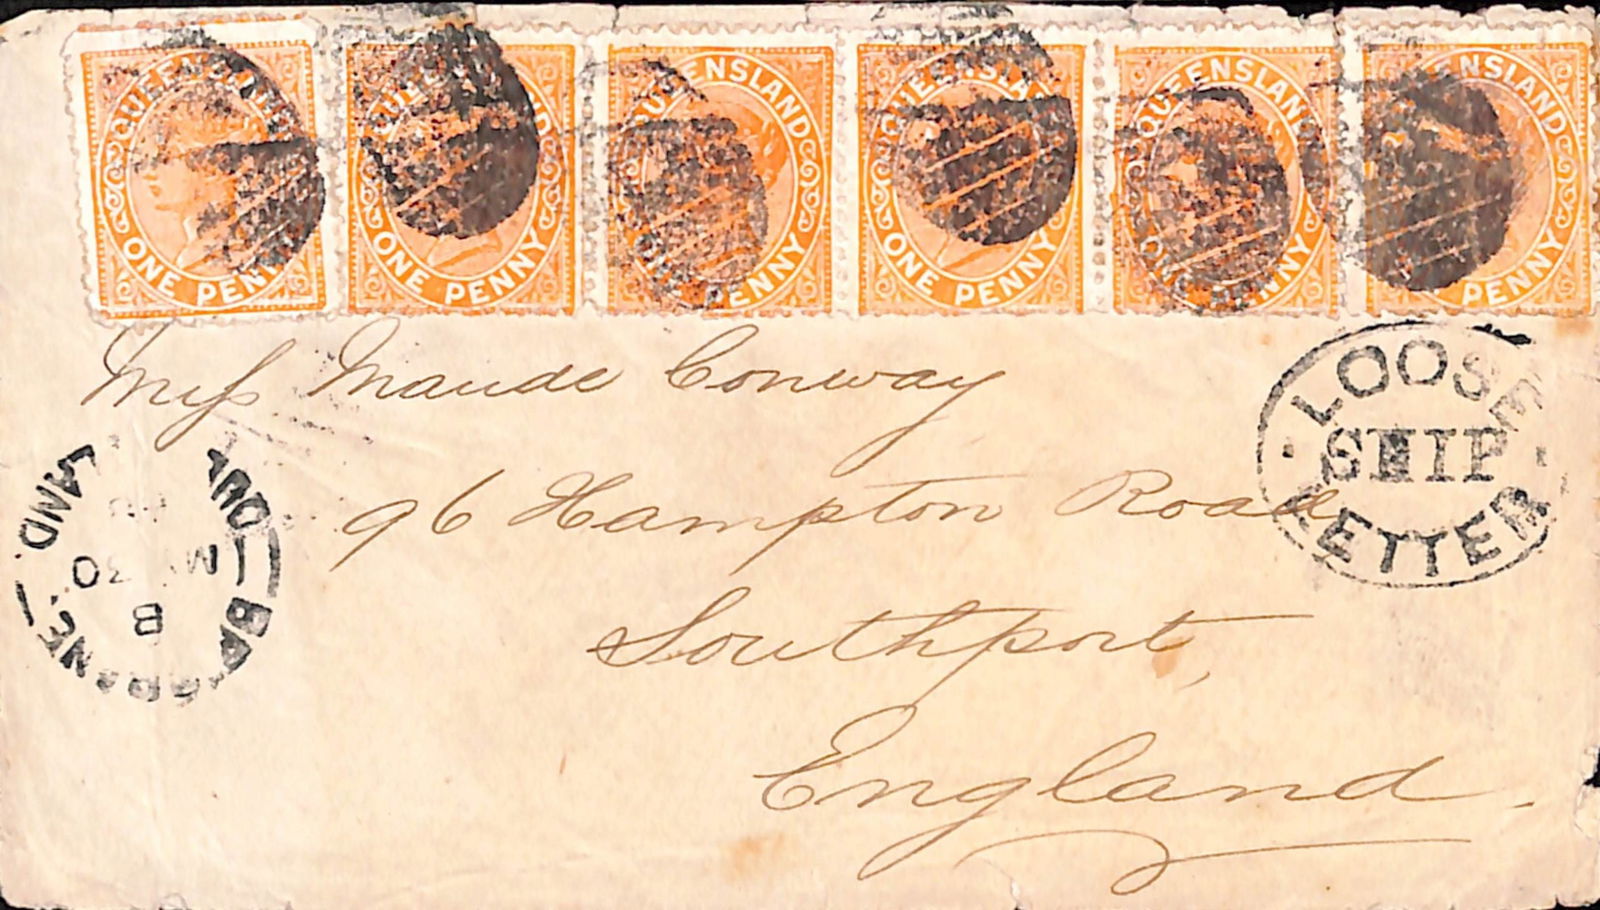 QUEENSLAND ONE PENNY
QUEENSLAND ONE PENNY
QUEENSLAND ONE PENNY
QUEENSLAND ONE PENNY
QUEENSLAND ONE PENNY
QUEENSLAND ONE PENNY
Miss Maude Conway
LOOSE
SHIP
LETTER
96 Hampton Road
Southport,
England.
BRISBANE
B
30
LAND.